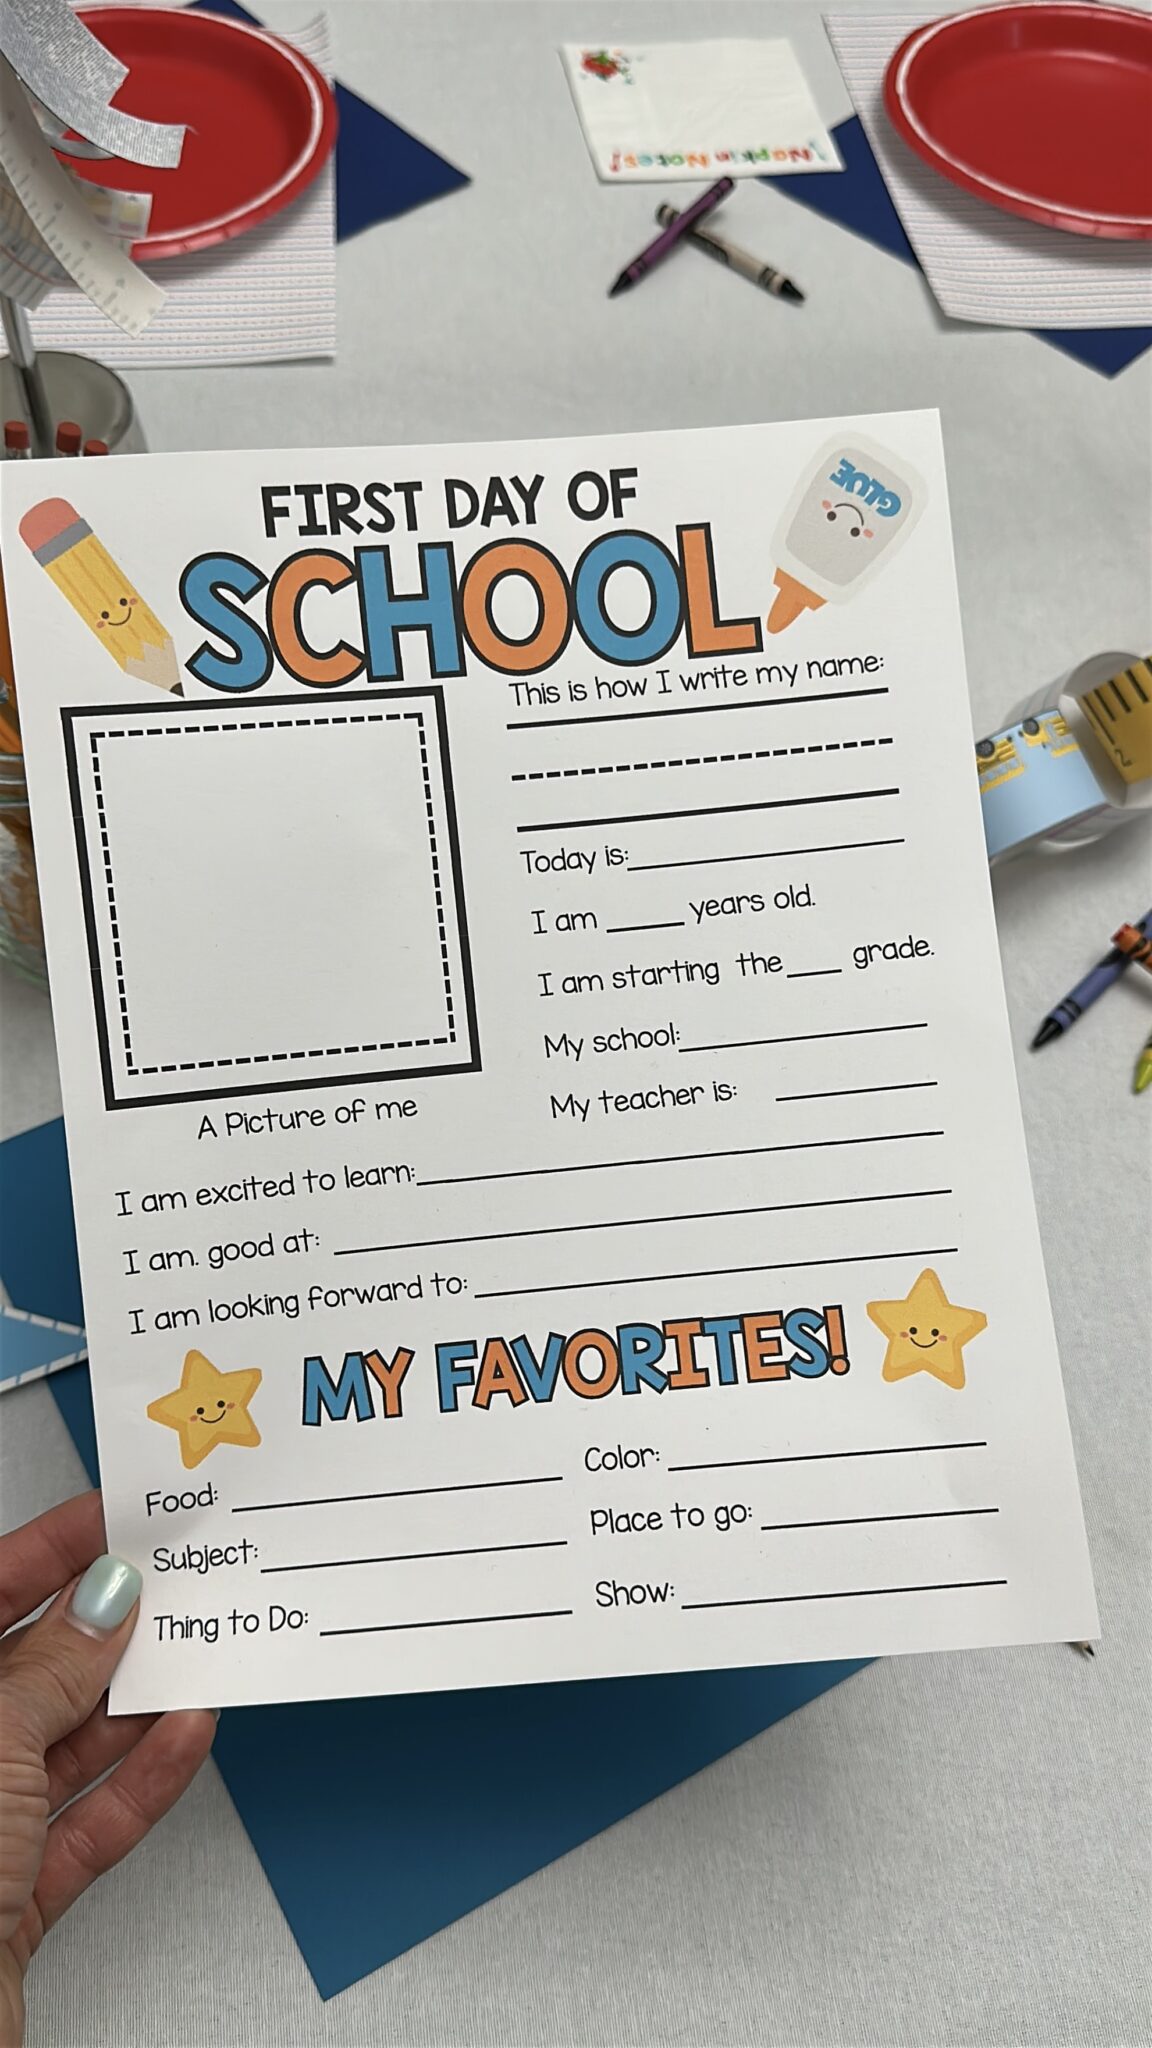 ¡Napkin Notes!
FIRST DAY OF
SCHOOL
GLUE
This is how I write my name:
Today is:
I am _____ years old.
I am starting the ___ grade.
My school:
My teacher is:
A Picture of me
I am excited to learn:
I am. good at:
I am looking forward to:
MY FAVORITES!
Food:
Color:
Subject:
Place to go:
Thing to Do:
Show:
2